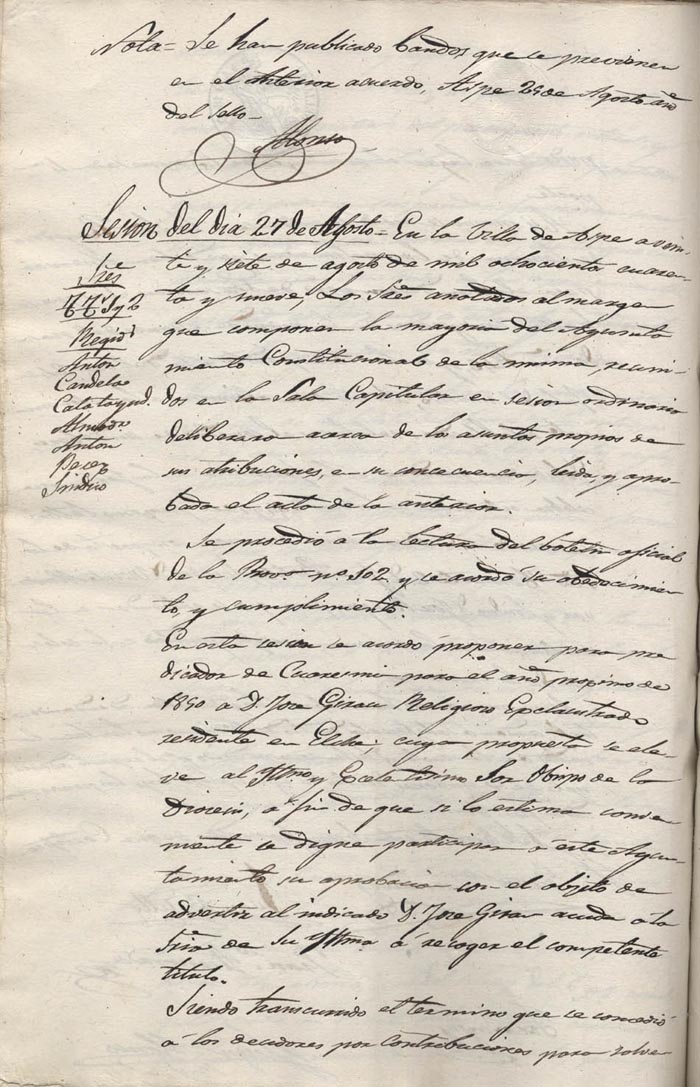 Nota = Se han publicado bandos que se previenen
en el Anterior acuerdo, Aspe 29 de Agosto año
del sello =
Alonso
Sesion del dia 27 de Agosto = En la Villa de Aspe a vein-
te y siete de agosto de mil ochociento cuaren-
ta y nueve, Los Sres anotados al margen
que componen la mayoria del Ayunta
miento Constitucional de la misma, reuni-
dos en la Sala Capitular en sesion ordinaria
deliberaro acerca de los asuntos propios de
sus atribuciones, en su concecuencia, leida, y apro-
bada el acta de la anterior.
Sres
TT 1º y 2
Regid
Anton
Candela
Calatayud
Almodov
Anton
Perez
Sindico
Se procedió a la lectura del boletin oficial
de la Prova nº 102 y se acordó su obedecimien
to, y cumplimiento.
En esta sesion se acordo proponer para pre
dicador de Cuaresma para el año proximo de
1850 a D. Jose Girau Religioso Exclaustrado
residente en Elche; cuya propuesta se ele-
ve al Iltmo y Excelentisimo Sor Obispo de la
Diocesis, a fin de que si lo estima conve-
niente se digne participar a este Ayun
tamiento su aprobacion con el objeto de
advertir al indicado D. Jose Girau acuda a la
Sria de Su Iltma a recoger el competente
titulo.
Siendo transcurrido el termino que se concedió
a los deudores por contribuciones para solve